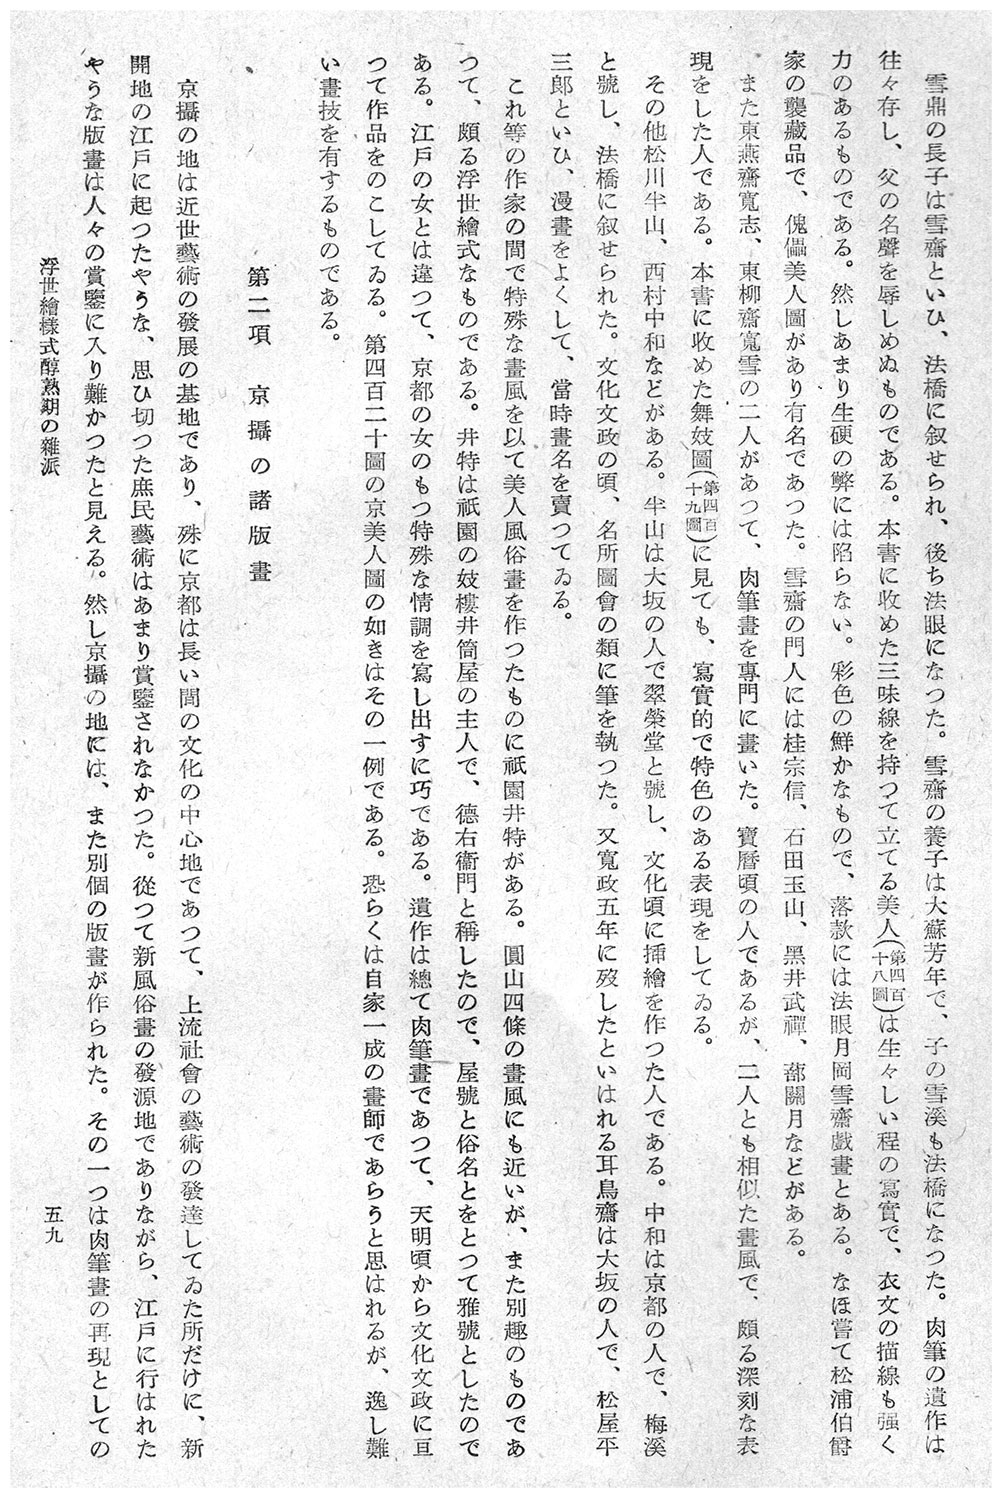 雪鼎の長子は雪齋といひ、法橋に叙せられ、後ち法眼になつた。雪齋の養子は大蘇芳年で、子の雪溪も法橋になつた。肉筆の遺作は
往々存し、父の名聲を辱しめぬものである。本書に收めた三味線を持つて立てる美人(第四百十八圖)は生々しい程の寫實で、衣文の描線も强く
力のあるものである。然しあまり生硬の弊には陷らない。彩色の鮮かなもので、落款には法眼月岡雪齋戲畫とある。なほ嘗て松浦伯爵
家の襲藏品で、傀儡美人圖があり有名であつた。雪齋の門人には桂宗信、石田玉山、黑井武禪、蔀關月などがある。
また東燕齋寬志、東柳齋寬雪の二人があつて、肉筆畫を專門に畫いた。寶曆頃の人であるが、二人とも相似た畫風で、頗る深刻な表
現をした人である。本書に收めた舞妓圖(第四百十九圖)に見ても、寫實的で特色のある表現をしてゐる。
その他松川半山、西村中和などがある。半山は大坂の人で翠榮堂と號し、文化頃に揷繪を作つた人である。中和は京都の人で、梅溪
と號し、法橋に叙せられた。文化文政の頃、名所圖會の類に筆を執つた。又寬政五年に歿したといはれる耳鳥齋は大坂の人で、松屋平
三郎といひ、漫畫をよくして、當時畫名を賣つてゐる。
これ等の作家の間で特殊な畫風を以て美人風俗畫を作つたものに祇園井特がある。圓山四條の畫風にも近いが、また別趣のものであ
つて、頗る浮世繪式なものである。井特は祇園の妓樓井筒屋の主人で、德右衞門と稱したので、屋號と俗名とをとつて雅號としたので
ある。江戸の女とは違つて、京都の女のもつ特殊な情調を寫し出すに巧である。遺作は總て肉筆畫であつて、天明頃から文化文政に亘
つて作品をのこしてゐる。第四百二十圖の京美人圖の如きはその一例である。恐らくは自家一成の畫師であらうと思はれるが、逸し難
い畫技を有するものである。
第二項　京攝の諸版畫
京攝の地は近世藝術の發展の基地であり、殊に京都は長い間の文化の中心地であつて、上流社會の藝術の發達してゐた所だけに、新
開地の江戸に起つたやうな、思ひ切つた庶民藝術はあまり賞鑒されなかつた。從つて新風俗畫の發源地でありながら、江戸に行はれた
やうな版畫は人々の賞鑒に入り難かつたと見える。然し京攝の地には、また別個の版畫が作られた。その一つは肉筆畫の再現としての
浮世繪樣式醇熟期の雜派
五九